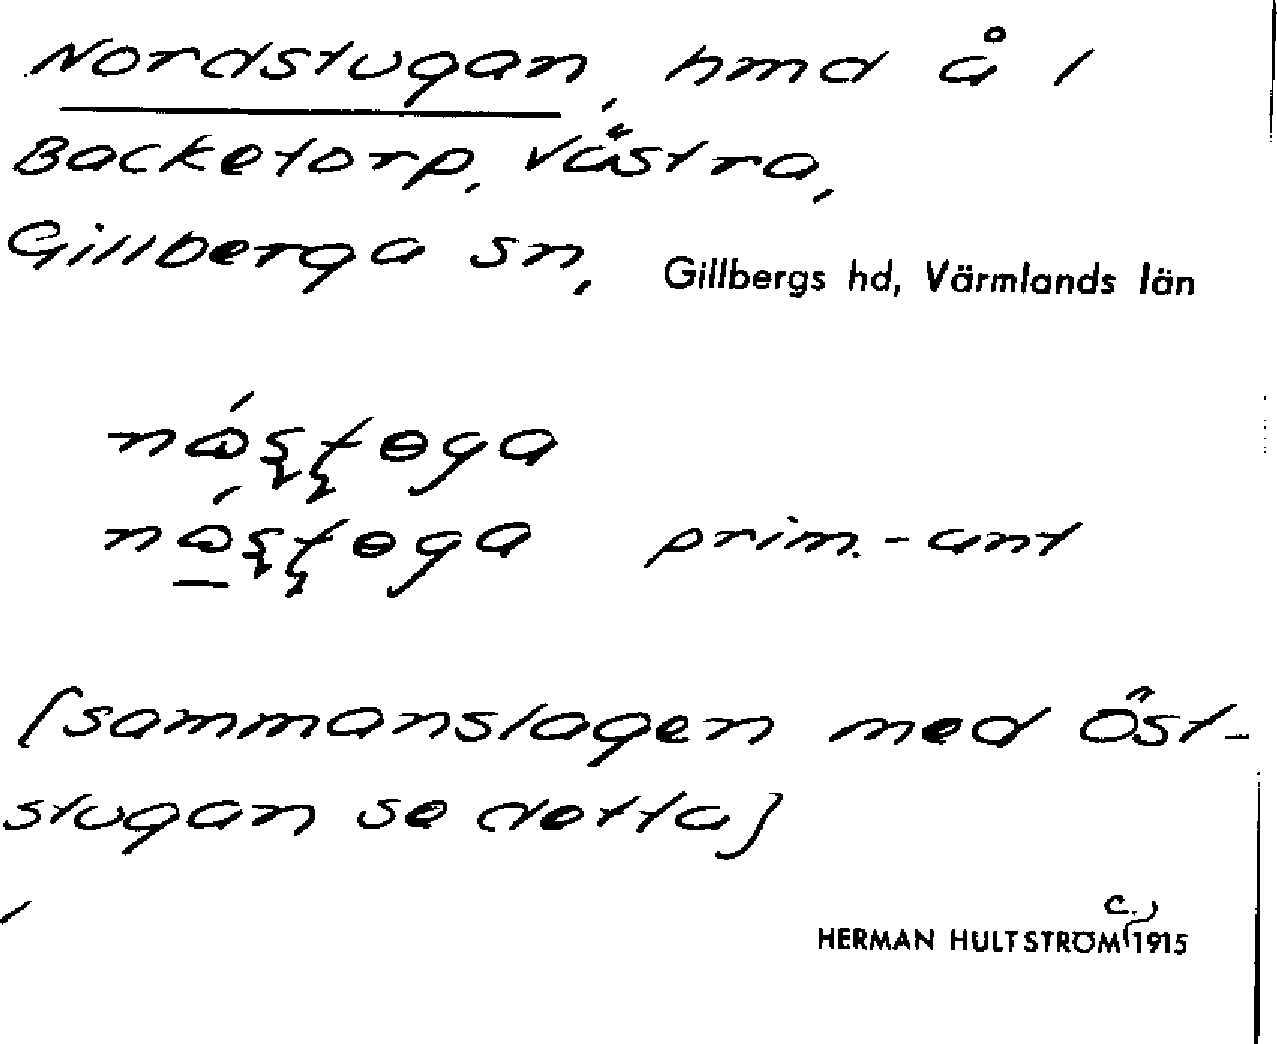 Nordstugan, hmd å 1
Backetorp, Västra,
Gillberga sn, Gillbergs hd, Värmlands län
nú̀ʂʈɵga
nú̀ʂʈɵga prim.-ant
[sammanslagen med Öst-
stugan se detta]
HERMAN HULTSTRÖM c. 1915